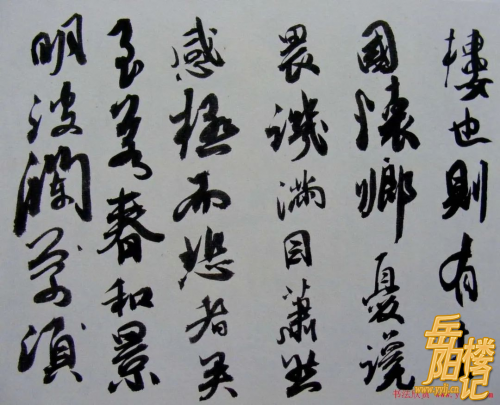 樓也則有
國懷鄉憂讒
畏譏滿目蕭然
感極而悲者矣
至若春和景
明波瀾萬頃
岳阳楼记
书法欣赏